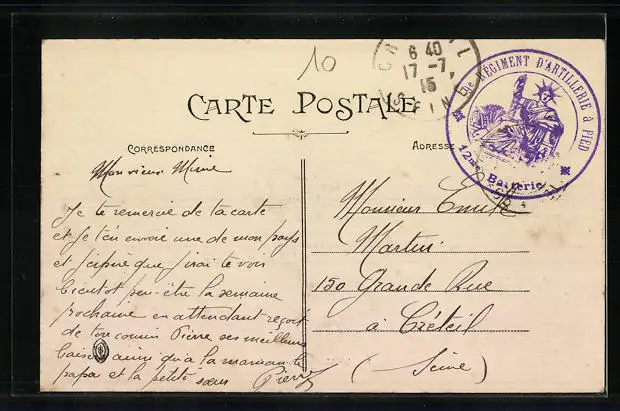 10
CARTE POSTALE
CORRESPONDANCE
ADRESSE
6 40
17 -7
15
RÉGIMENT D'ARTILLERIE à PIED
12me Batterie
Mon vieux Mimi
Je te remercie de ta carte
et je t'en envoie une de mon pays
et j'espère que j'irai te voir
bientot peu-être la semaine
prochaine en attendant reçoit
de ton cousin Pierre ses meilleurs
baisers ainsi qu'a la maman le
papa et la petite sœur Pierre
Monsieur Emile
Martin
150 Grande Rue
à Créteil
(Seine)